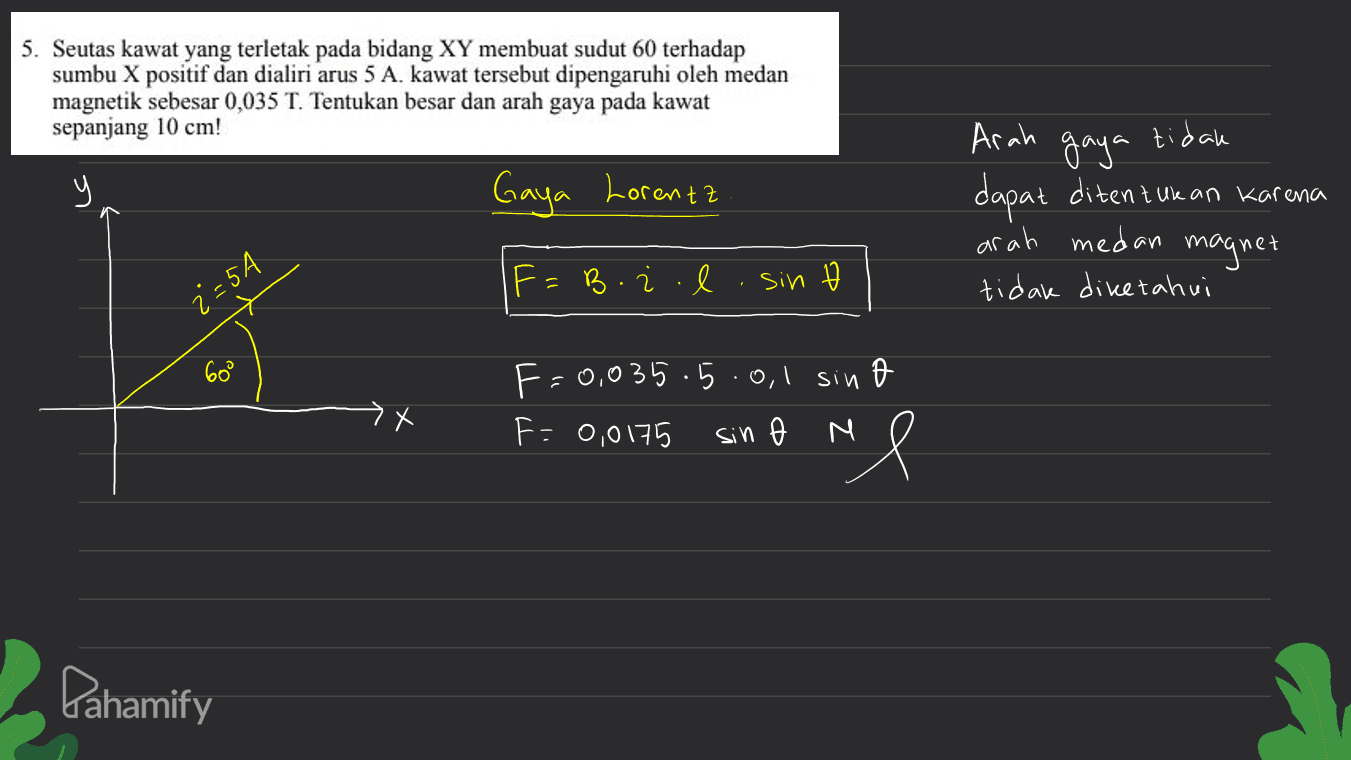 5. Seutas kawat yang terletak pada bidang XY membuat sudut 60 terhadap
sumbu X positif dan dialiri arus 5 A. kawat tersebut dipengaruhi oleh medan
magnetik sebesar 0,035 T. Tentukan besar dan arah gaya pada kawat
sepanjang 10 cm!
y
i = 5A
60°
x
Gaya Lorentz
F = B . i . l . sin θ
F = 0,035 . 5 . 0,1 sin θ
F = 0,0175 sin θ N
Arah gaya tidak
dapat ditentukan karena
arah medan magnet
tidak diketahui
Pahamify